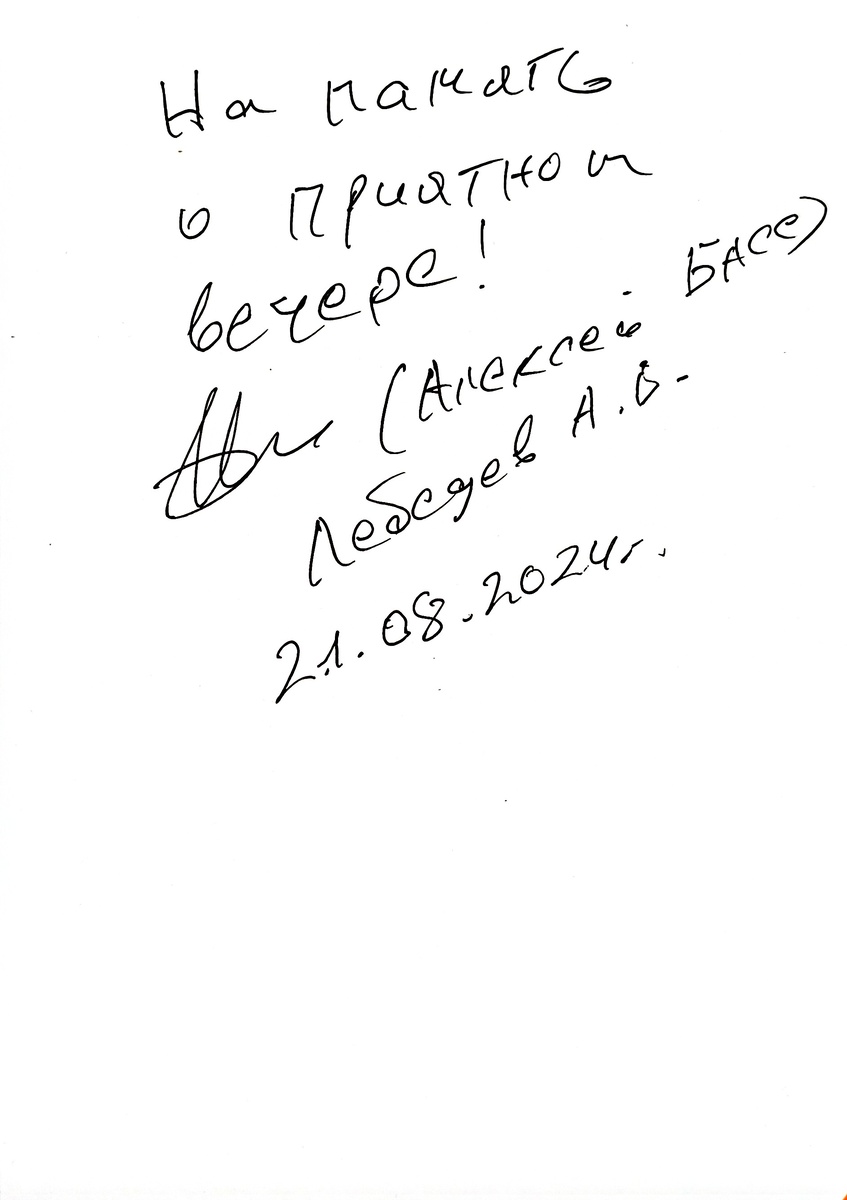 На память
о приятном
вечере!
(Алексей БАСС)
Лебедев А.В.
21.08.2024г.